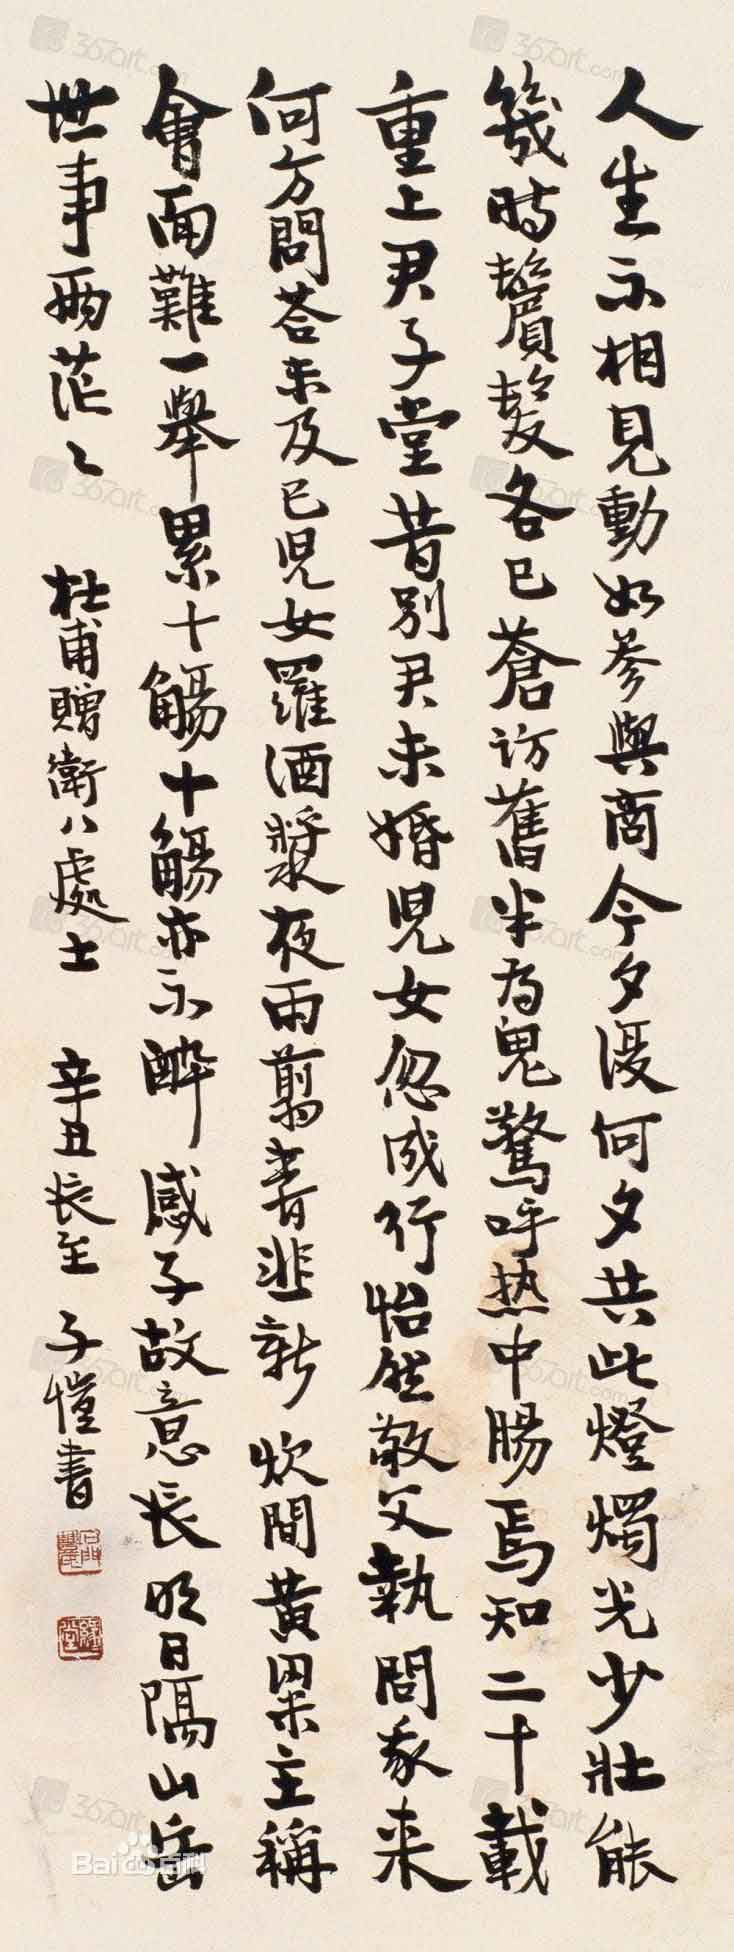 人生不相見動如參與商今夕復何夕共此燈燭光少壯能
幾時鬢髮各已蒼訪舊半為鬼驚呼热中腸焉知二十載
重上君子堂昔別君未婚兒女忽成行怡然敬父執問我来
何方問荅未及已兒女羅酒漿夜雨翦春韭新炊間黃粱主稱
會面難一舉累十觴十觴亦不醉感子故意長明日隔山岳
世事兩茫々 杜甫贈衛八處士 辛丑長至 子愷書
石門豐氏
緣緣堂
367art.com
Bai百科